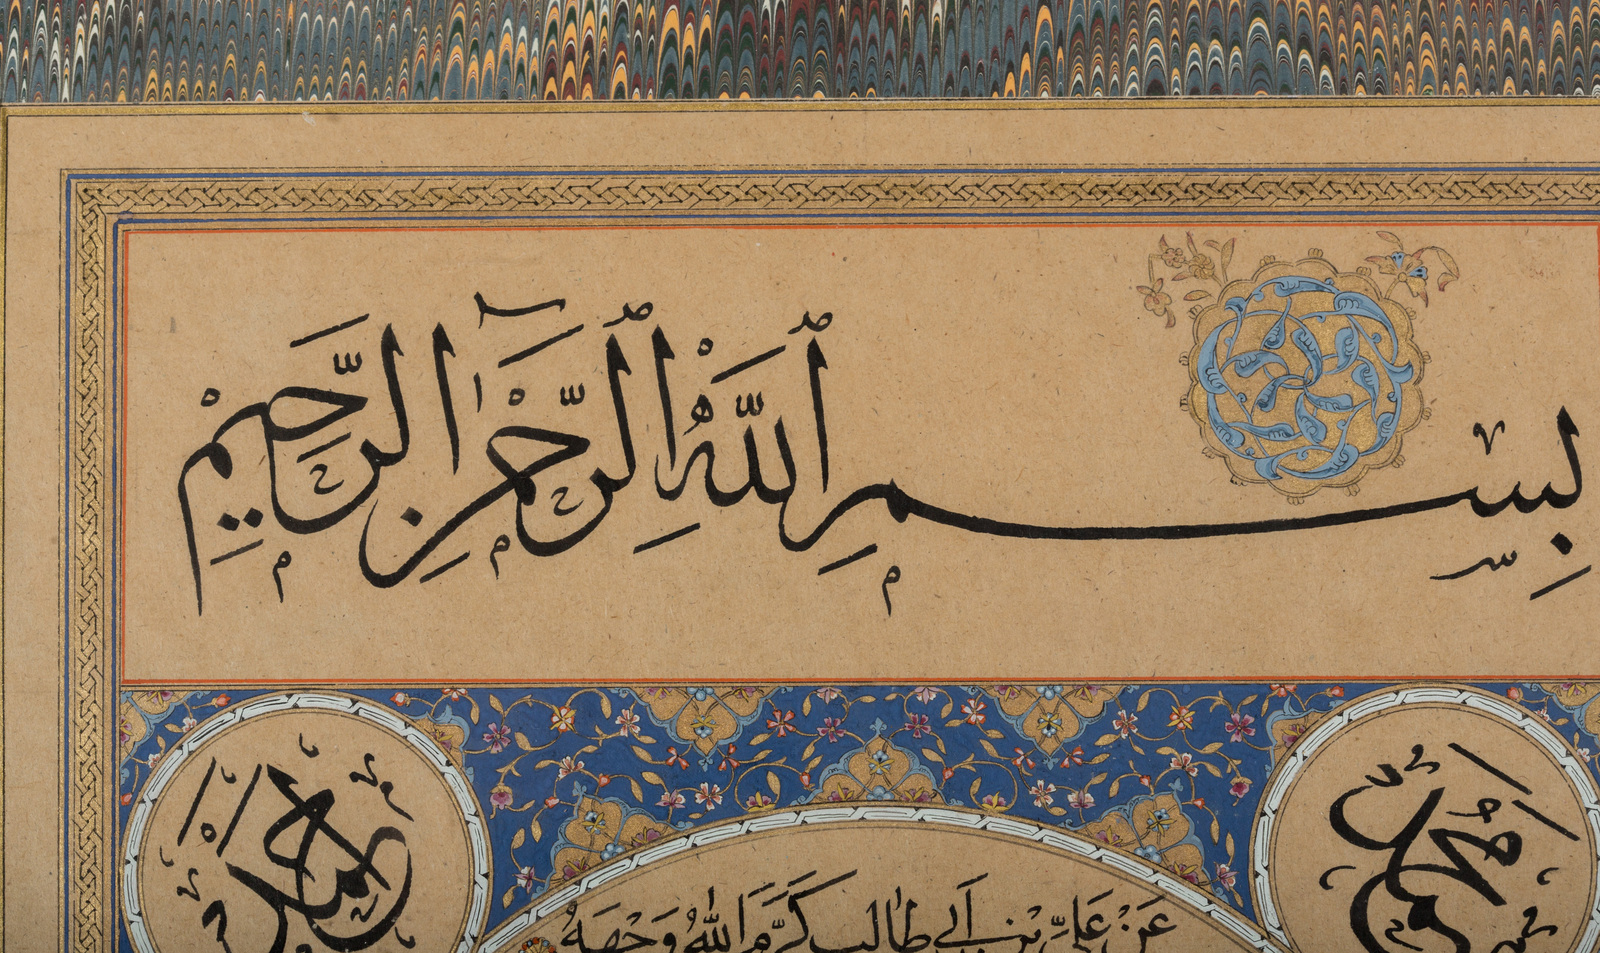 بِسْمِ ٱللَّهِ ٱلرَّحْمٰنِ ٱلرَّحِيْمِ
عَنْ عَلِيِّ بْنِ اَبِي طَالِب كَرَّمَ اللّٰهُ وَجْهَهُ